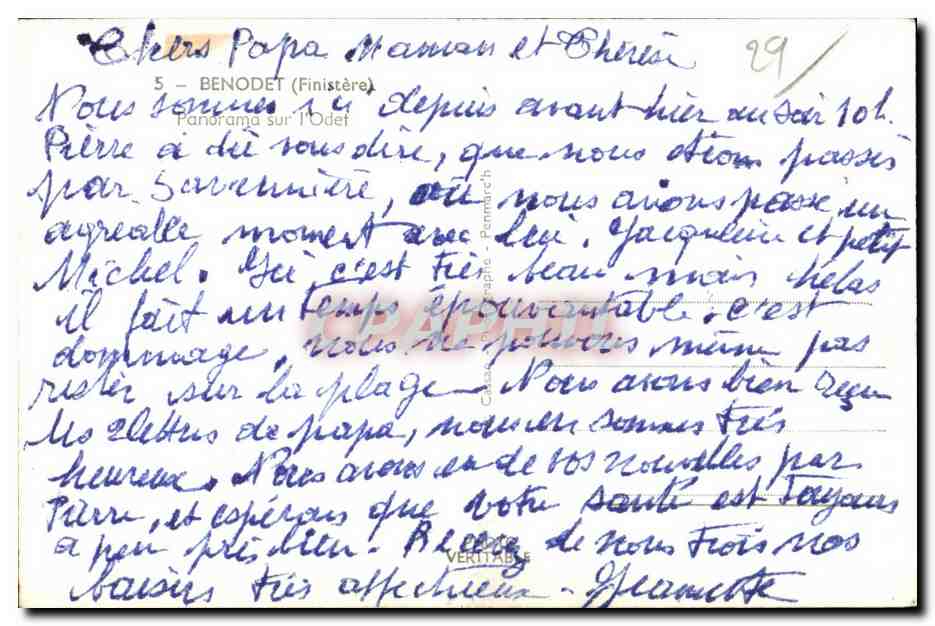 Chers Papa Maman et Thérèse
29/
5 – BENODET (Finistère)
Nous sommes ici depuis avant hier au soir 10h.
Panorama sur l'Odet
Pierre a dû vous dire, que nous étions passés
par Savennière, où nous avions passé un
agréable moment avec lui. Jacqueline et petit
Michel. Ici c'est très beau mais helas
il fait un temps épouvantable, c'est
CPAPHIL
dommage, nous ne pouvons même pas
rester sur la plage. Nous avons bien reçu
les 2 lettres de papa, nous en sommes très
heureux. Nous avons eu de vos nouvelles par
Pierre, et espérons que votre santé est toujours
à peu près bien. Recevez de nous trois nos
VERITABLE
baisers très affectueux - Jeannette
Photographe - Penmarc'h